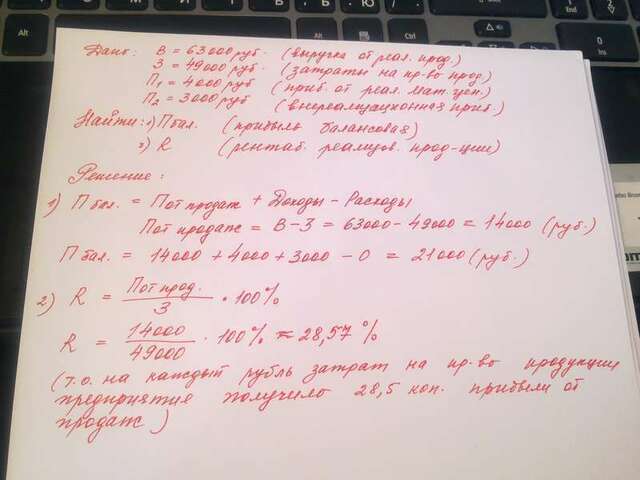 Дано: В = 63000 руб. (выручка от реал. прод.)
З = 49000 руб. (затраты на пр-во прод)
П₁ = 4000 руб (приб. от реал. мат. цен.)
П₂ = 3000 руб (внереализационная приб.)
Найти: 1) П бал. (прибыль балансовая)
2) R (рентаб. реализов. прод-ции)
Решение:
1) П бал. = П от продаж + Доходы - Расходы
П от продаж = В - З = 63000 - 49000 = 14000 (руб.)
П бал. = 14000 + 4000 + 3000 - 0 = 21000 (руб.)
2) R = П от прод. / З · 100%
R = 14000 / 49000 · 100% ≈ 28,57 %
(т.о. на каждый рубль затрат на пр-во продукции
предприятие получило 28,5 коп. прибыли от
продаж)
Alt
Alt
Ctrl
Ins